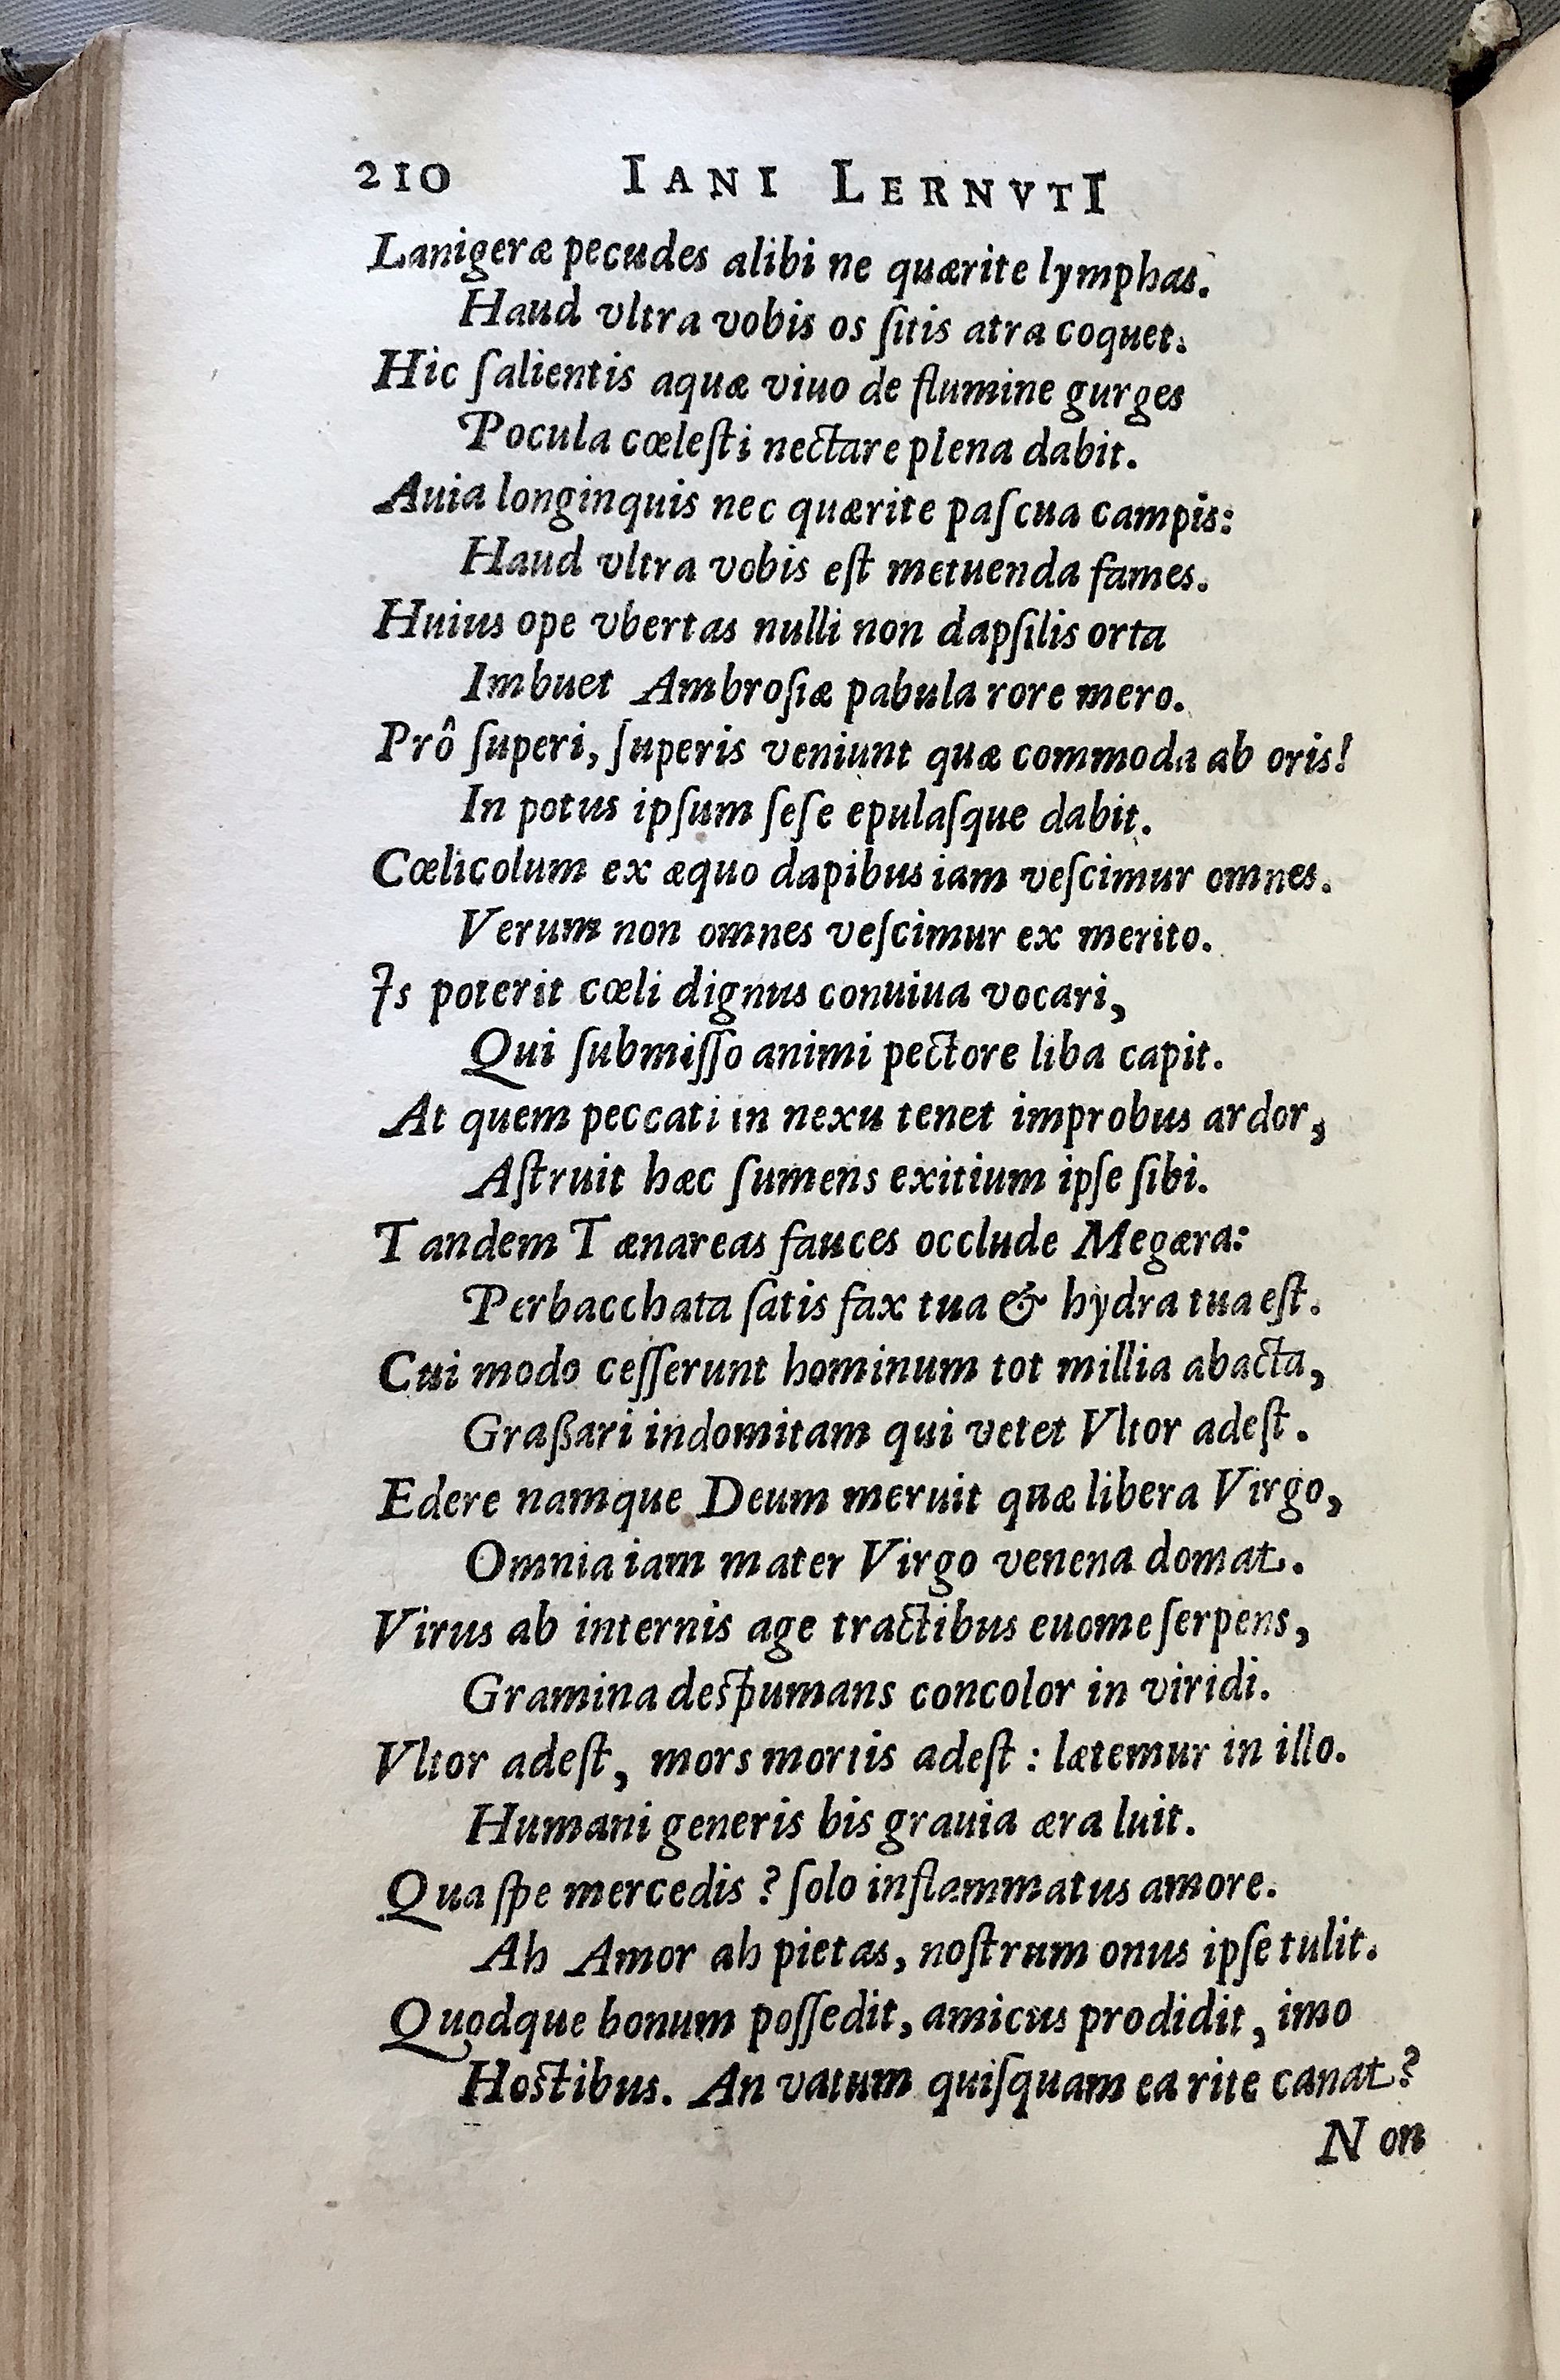 210 IANI LERNVTI
Lanigeræ pecudes alibi ne quærite lymphas.
Haud vltra vobis os ſitis atra coquet.
Hic ſalientis aquæ viuo de flumine gurges
Pocula cœleſti nectare plena dabit.
Auia longinquis nec quærite paſcua campis:
Haud vltra vobis eſt metuenda fames.
Huius ope vbertas nulli non dapſilis orta
Imbuet Ambroſiæ pabula rore mero.
Prô ſuperi, ſuperis veniunt quæ commoda ab oris!
In potus ipſum ſeſe epulaſque dabit.
Cœlicolum ex æquo dapibus iam veſcimur omnes.
Verum non omnes veſcimur ex merito.
Is poterit cœli dignus conuiua vocari,
Qui ſubmiſſo animi pectore liba capit.
At quem peccati in nexu tenet improbus ardor,
Aſtruit hæc ſumens exitium ipſe ſibi.
Tandem Tænareas fauces occlude Megæra:
Perbacchata ſatis fax tua & hydra tua eſt.
Cui modo ceſſerunt hominum tot millia abacta,
Graßari indomitam qui vetet Vltor adeſt.
Edere namque Deum meruit quæ libera Virgo,
Omnia iam mater Virgo venena domat.
Virus ab internis age tractibus euome ſerpens,
Gramina deſpumans concolor in viridi.
Vltor adeſt, mors mortis adeſt : lætemur in illo.
Humani generis bis grauia æra luit.
Qua ſpe mercedis ? ſolo inflammatus amore.
Ah Amor ah pietas, noſtrum onus ipſe tulit.
Quodque bonum poſſedit, amicus prodidit, imo
Hoſtibus. An vatum quiſquam ea rite canat?
Non